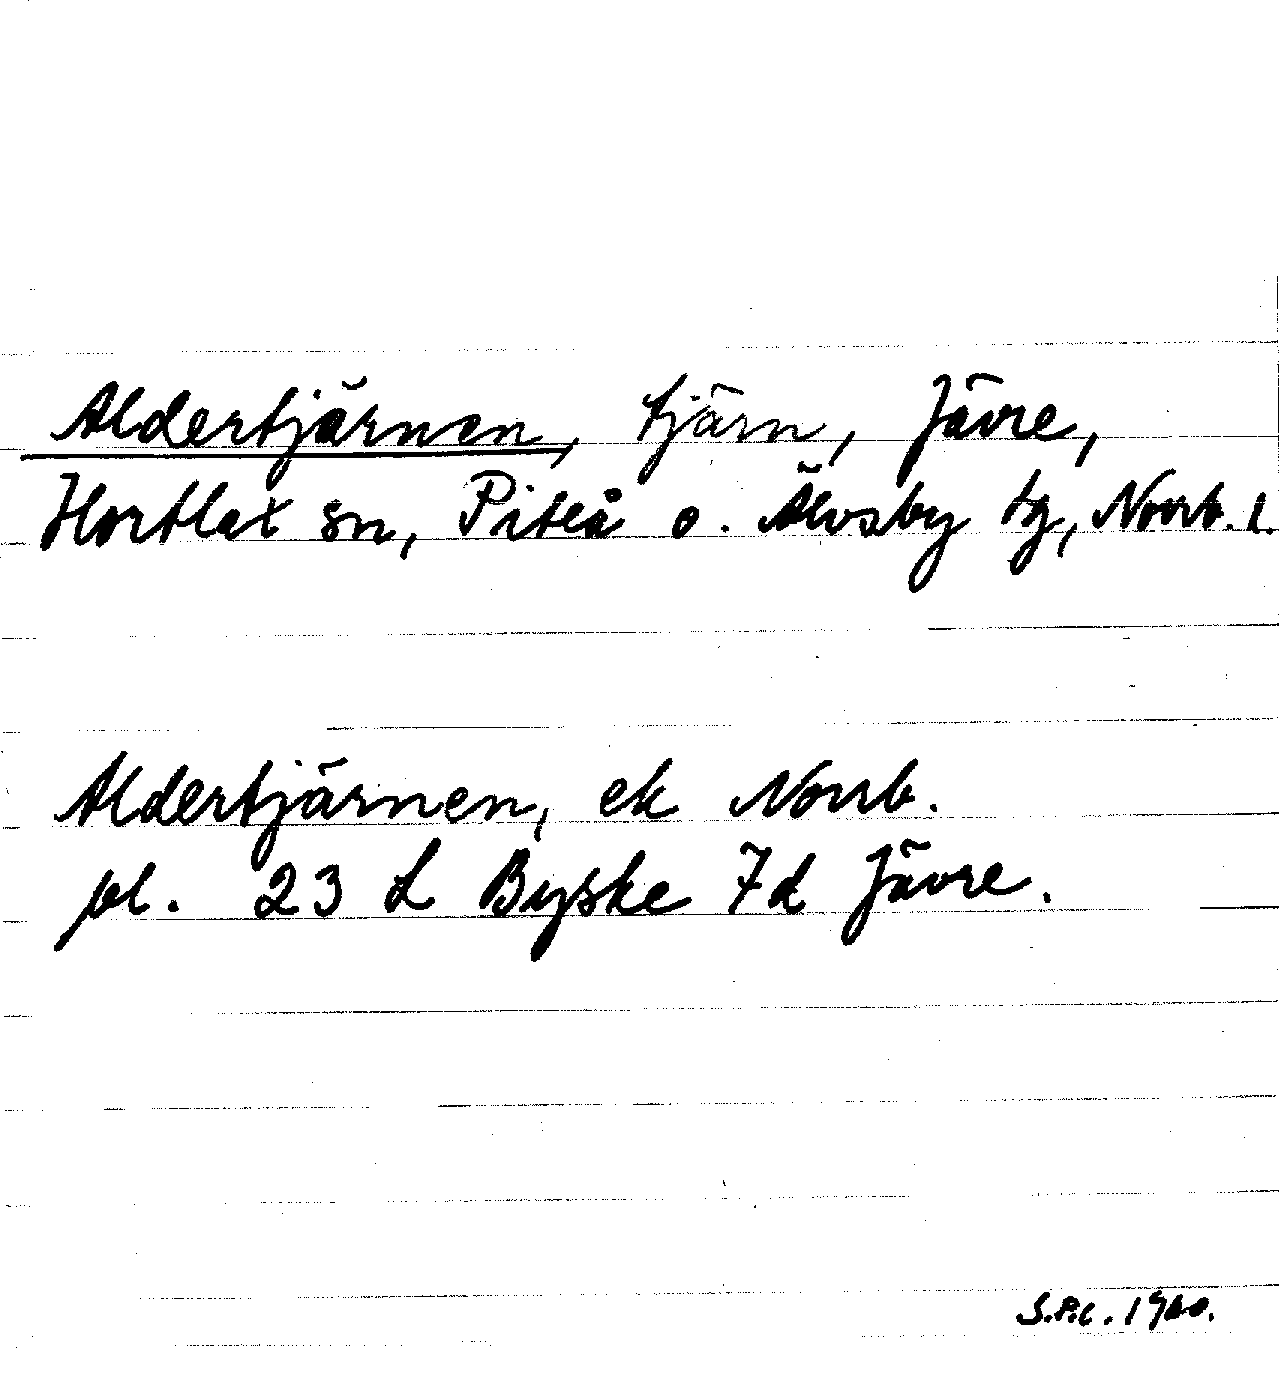 Aldertjärnen, tjärn, Jävre,
Hortlax sn, Piteå o. Älvsby tg, Norrb. l.
Aldertjärnen, ek Norrb.
pl. 23 L Byske 7d Jävre.
S.P.C. 1960.